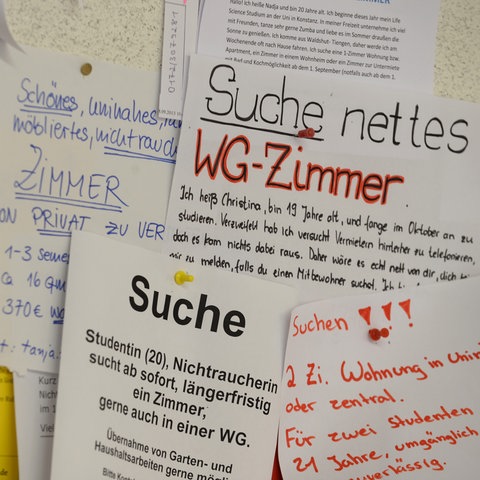 Hallo! Ich heiße Nadja und bin 20 Jahre alt. Ich beginne dieses Jahr mein Life
Science Studium an der Uni in Konstanz. In meiner Freizeit unternehme ich viel
mit Freunden, tanze sehr gerne Zumba und liebe es im Sommer draußen die
Sonne zu genießen. Ich komme aus Waldshut- Tiengen, daher werde ich am
Wochenende oft nach Hause fahren. Ich suche eine 1-Zimmer Wohnung bzw.
Apartment, ein Zimmer in einem Wohnheim oder ein Zimmer zur Untermiete
mit Bad und Kochmöglichkeit ab dem 1. September (notfalls auch ab dem 1.
Schönes, uninahes,
möbliertes, nichtrauch
ZIMMER
ON PRIVAT ZU VER
1-3 Seme
ca 16 qm
370€
t: tanja.
Suche nettes
WG-Zimmer.
Ich heiß Christina, bin 19 Jahre alt, und fange im Oktober an zu
studieren. Verzweifelt hab ich versucht Vermietern hinterher zu telefonieren,
doch es kam nichts dabei raus. Daher wäre es echt nett von dir, dich bei
mir zu melden, falls du einen Mitbewohner suchst. Ich
Suche
Studentin (20), Nichtraucherin
sucht ab sofort, längerfristig
ein Zimmer,
gerne auch in einer WG.
Übernahme von Garten- und
Haushaltsarbeiten gerne mögli
Bitte Konta
Suchen !!!
2 Zi. Wohnung in Unin
oder zentral.
Für zwei Studenten
21 Jahre, umgänglich
verlässig.
Kurz
Nich
im 1
Viel